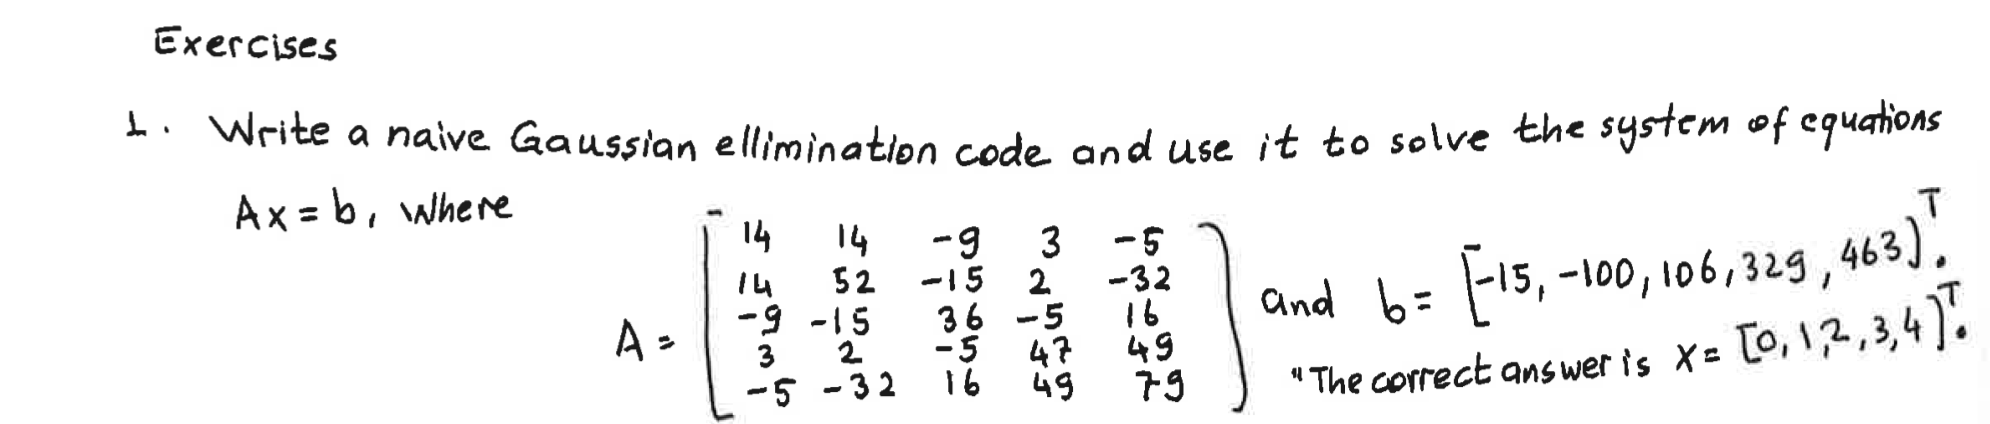 Exercises
1. Write a naive Gaussian ellimination code and use it to solve the system of equations
Ax = b, where
A = [ 14 14 -9 3 -5
14 52 -15 2 -32
-9 -15 36 -5 16
3 2 -5 47 49
-5 -32 16 49 79 ]
and b = [-15, -100, 106, 329, 463]ᵀ.
"The correct answer is x = [0, 1, 2, 3, 4]ᵀ.